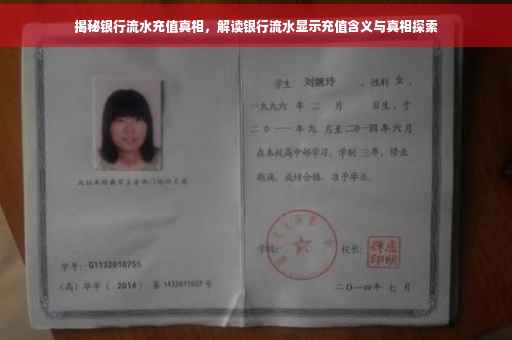 揭秘银行流水充值真相，解读银行流水显示充值含义与真相探索
学生 刘婉玲 ，性别 女 ，
一九九六 年 二 月 日生，于
二0一一年九 月至二0一四年六月
在本校高中部学习，学制 三年，修业
期满，成绩合格，准予毕业。
学号：G1132010755
学校： 校长：
(高) 毕字 ( 2014 ) 第 1432011007 号
二〇一四年 七 月